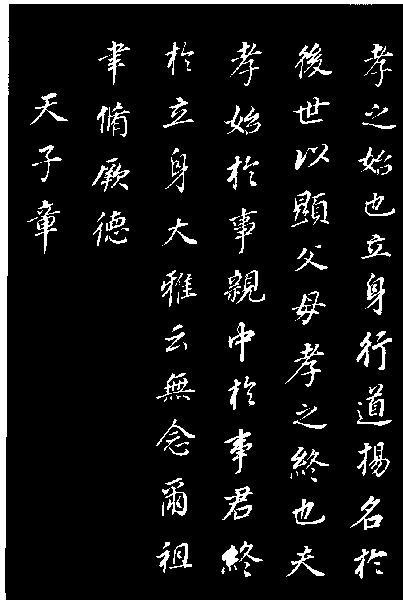 孝之始也立身行道揚名於
後世以顯父母孝之終也夫
孝始於事親中於事君終
於立身大雅云無念爾祖
聿脩厥德
天子章